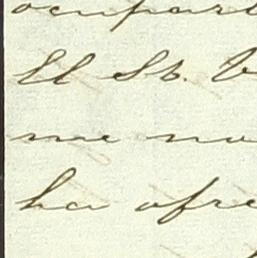 ocupar
El Sr.
me no
ha ofre